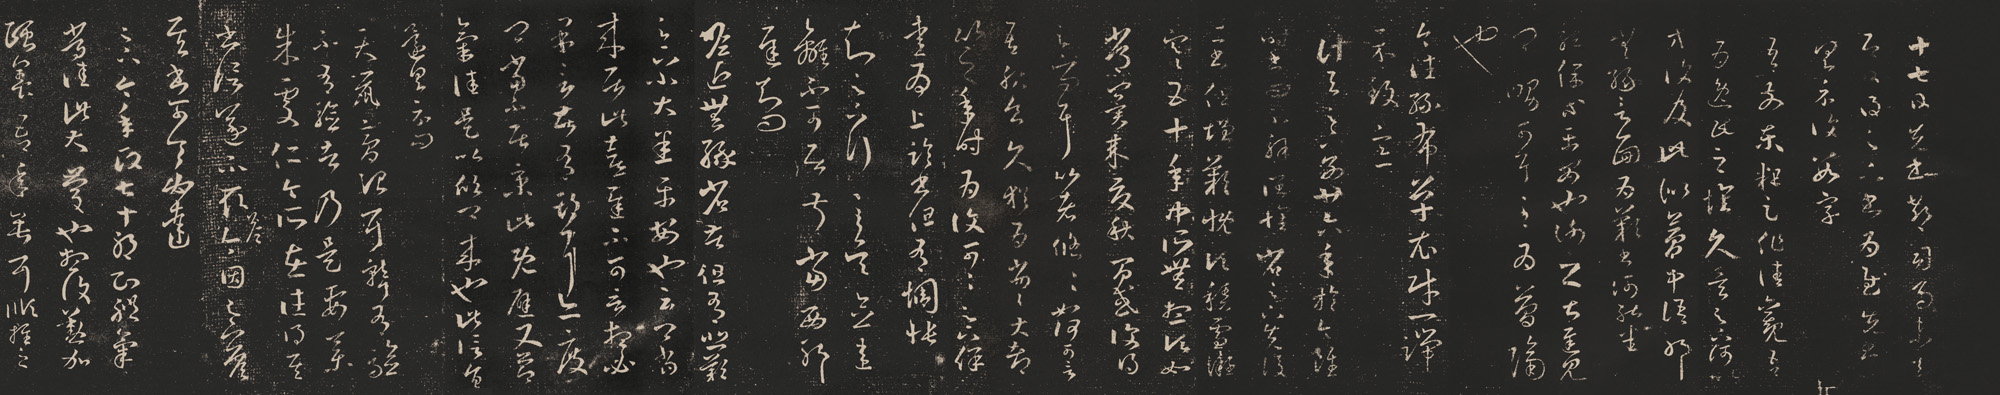 十七日先書郗司馬未去
即日得足下書為慰先書
以具示復數字
吾前東粗足作佳觀吾
為逸民之懷久矣足下何以
等復及此似夢中語耶
無緣言面為歎書何能悉
龍保等平安也謝之甚遲見
卿舅可耳至為簡隔
也
今往絲布單衣財一端
示致意
計與足下別廿六年於今雖
時書問不解闊懷省足下先後
二書但增歎慨頃積雪凝
寒五十年中所無想頃如
常冀來夏秋間或復得
足下問耳比者悠悠如何可言
吾服食久猶為劣劣大都
比之年時為復可可足下保
愛為上臨書但有惆悵
知足下行至吳念違
離不可居叔當西耶
遲知問
瞻近無緣省苦但有悲歎
足下小大悉平安也云卿當
來居此喜遲不可言想必
果言苦有期耳亦度
卿當不居京此既避又節
氣佳是以欣卿來也此信旨
還具示問
天鼠膏治耳聾有驗
不有驗者乃是要藥
朱處仁今所在往得其
書信遂不取答今因足下答
其書可令必達
足下今年政七十耶知體氣
常佳此大慶也想復勤加
頤養吾年垂耳順推之